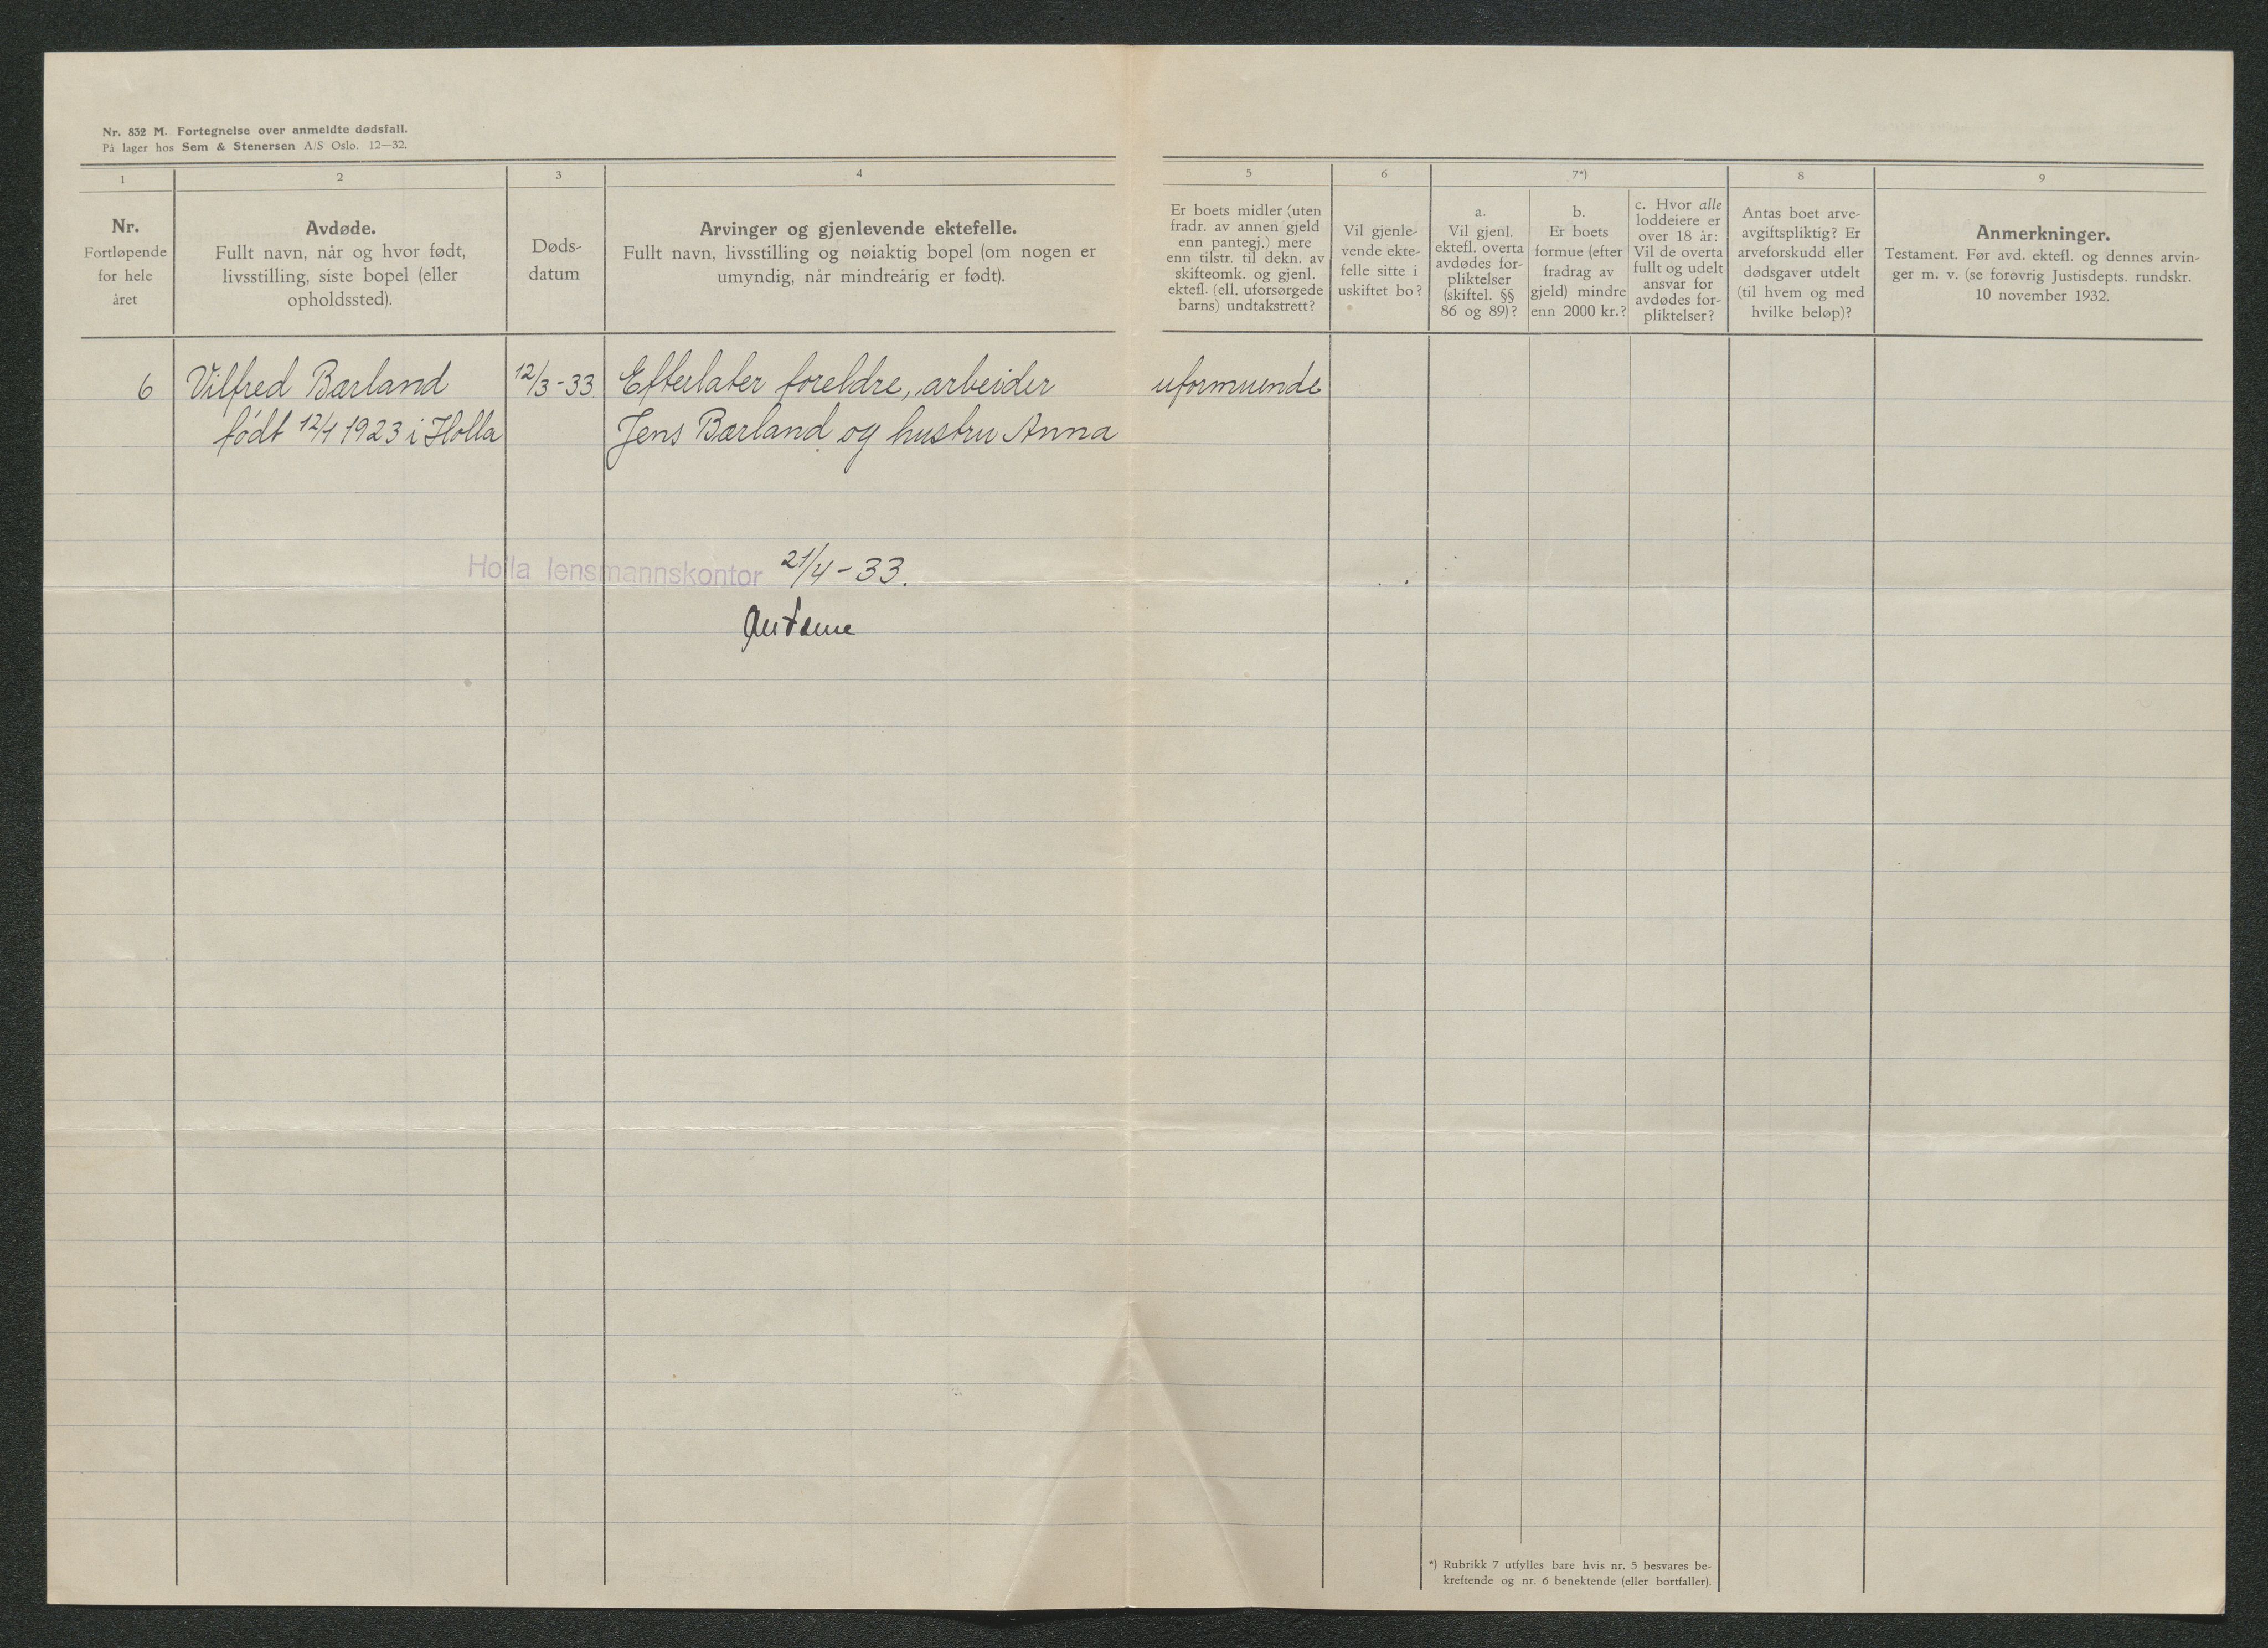 Nr. 832 M. Fortegnelse over anmeldte dødsfall.
På lager hos Sem & Stenersen A/S Oslo. 12—32.
1
2
3
4
5
6
7*)
8
9
Nr.
Fortløpende
for hele
året
Avdøde.
Fullt navn, når og hvor født,
livsstilling, siste bopel (eller
opholdssted).
Døds-
datum
Arvinger og gjenlevende ektefelle.
Fullt navn, livsstilling og nøiaktig bopel (om nogen er
umyndig, når mindreårig er født).
Er boets midler (uten
fradr. av annen gjeld
enn pantegj.) mere
enn tilstr. til dekn. av
skifteomk. og gjenl.
ektefl. (ell. uforsørgede
barns) undtakstrett?
Vil gjenle-
vende ekte-
felle sitte i
uskiftet bo?
a.
Vil gjenl.
ektefl. overta
avdødes for-
pliktelser
(skiftel. §§
86 og 89)?
b.
Er boets
formue (efter
fradrag av
gjeld) mindre
enn 2000 kr.?
c. Hvor alle
loddeiere er
over 18 år:
Vil de overta
fullt og udelt
ansvar for
avdødes for-
pliktelser?
Antas boet arve-
avgiftspliktig? Er
arveforskudd eller
dødsgaver utdelt
(til hvem og med
hvilke beløp)?
Anmerkninger.
Testament. Før avd. ektefl. og dennes arvin-
ger m. v. (se forøvrig Justisdepts. rundskr.
10 november 1932.
6
Vilfred Bærland
født 12/4 1923 i Holla
12/3-33.
Efterlater foreldre, arbeider
Jens Bærland og hustru Anna
uformuende
Holla lensmannskontor 21/4-33.
*) Rubrikk 7 utfylles bare hvis nr. 5 besvares be-
kreftende og nr. 6 benektende (eller bortfaller).